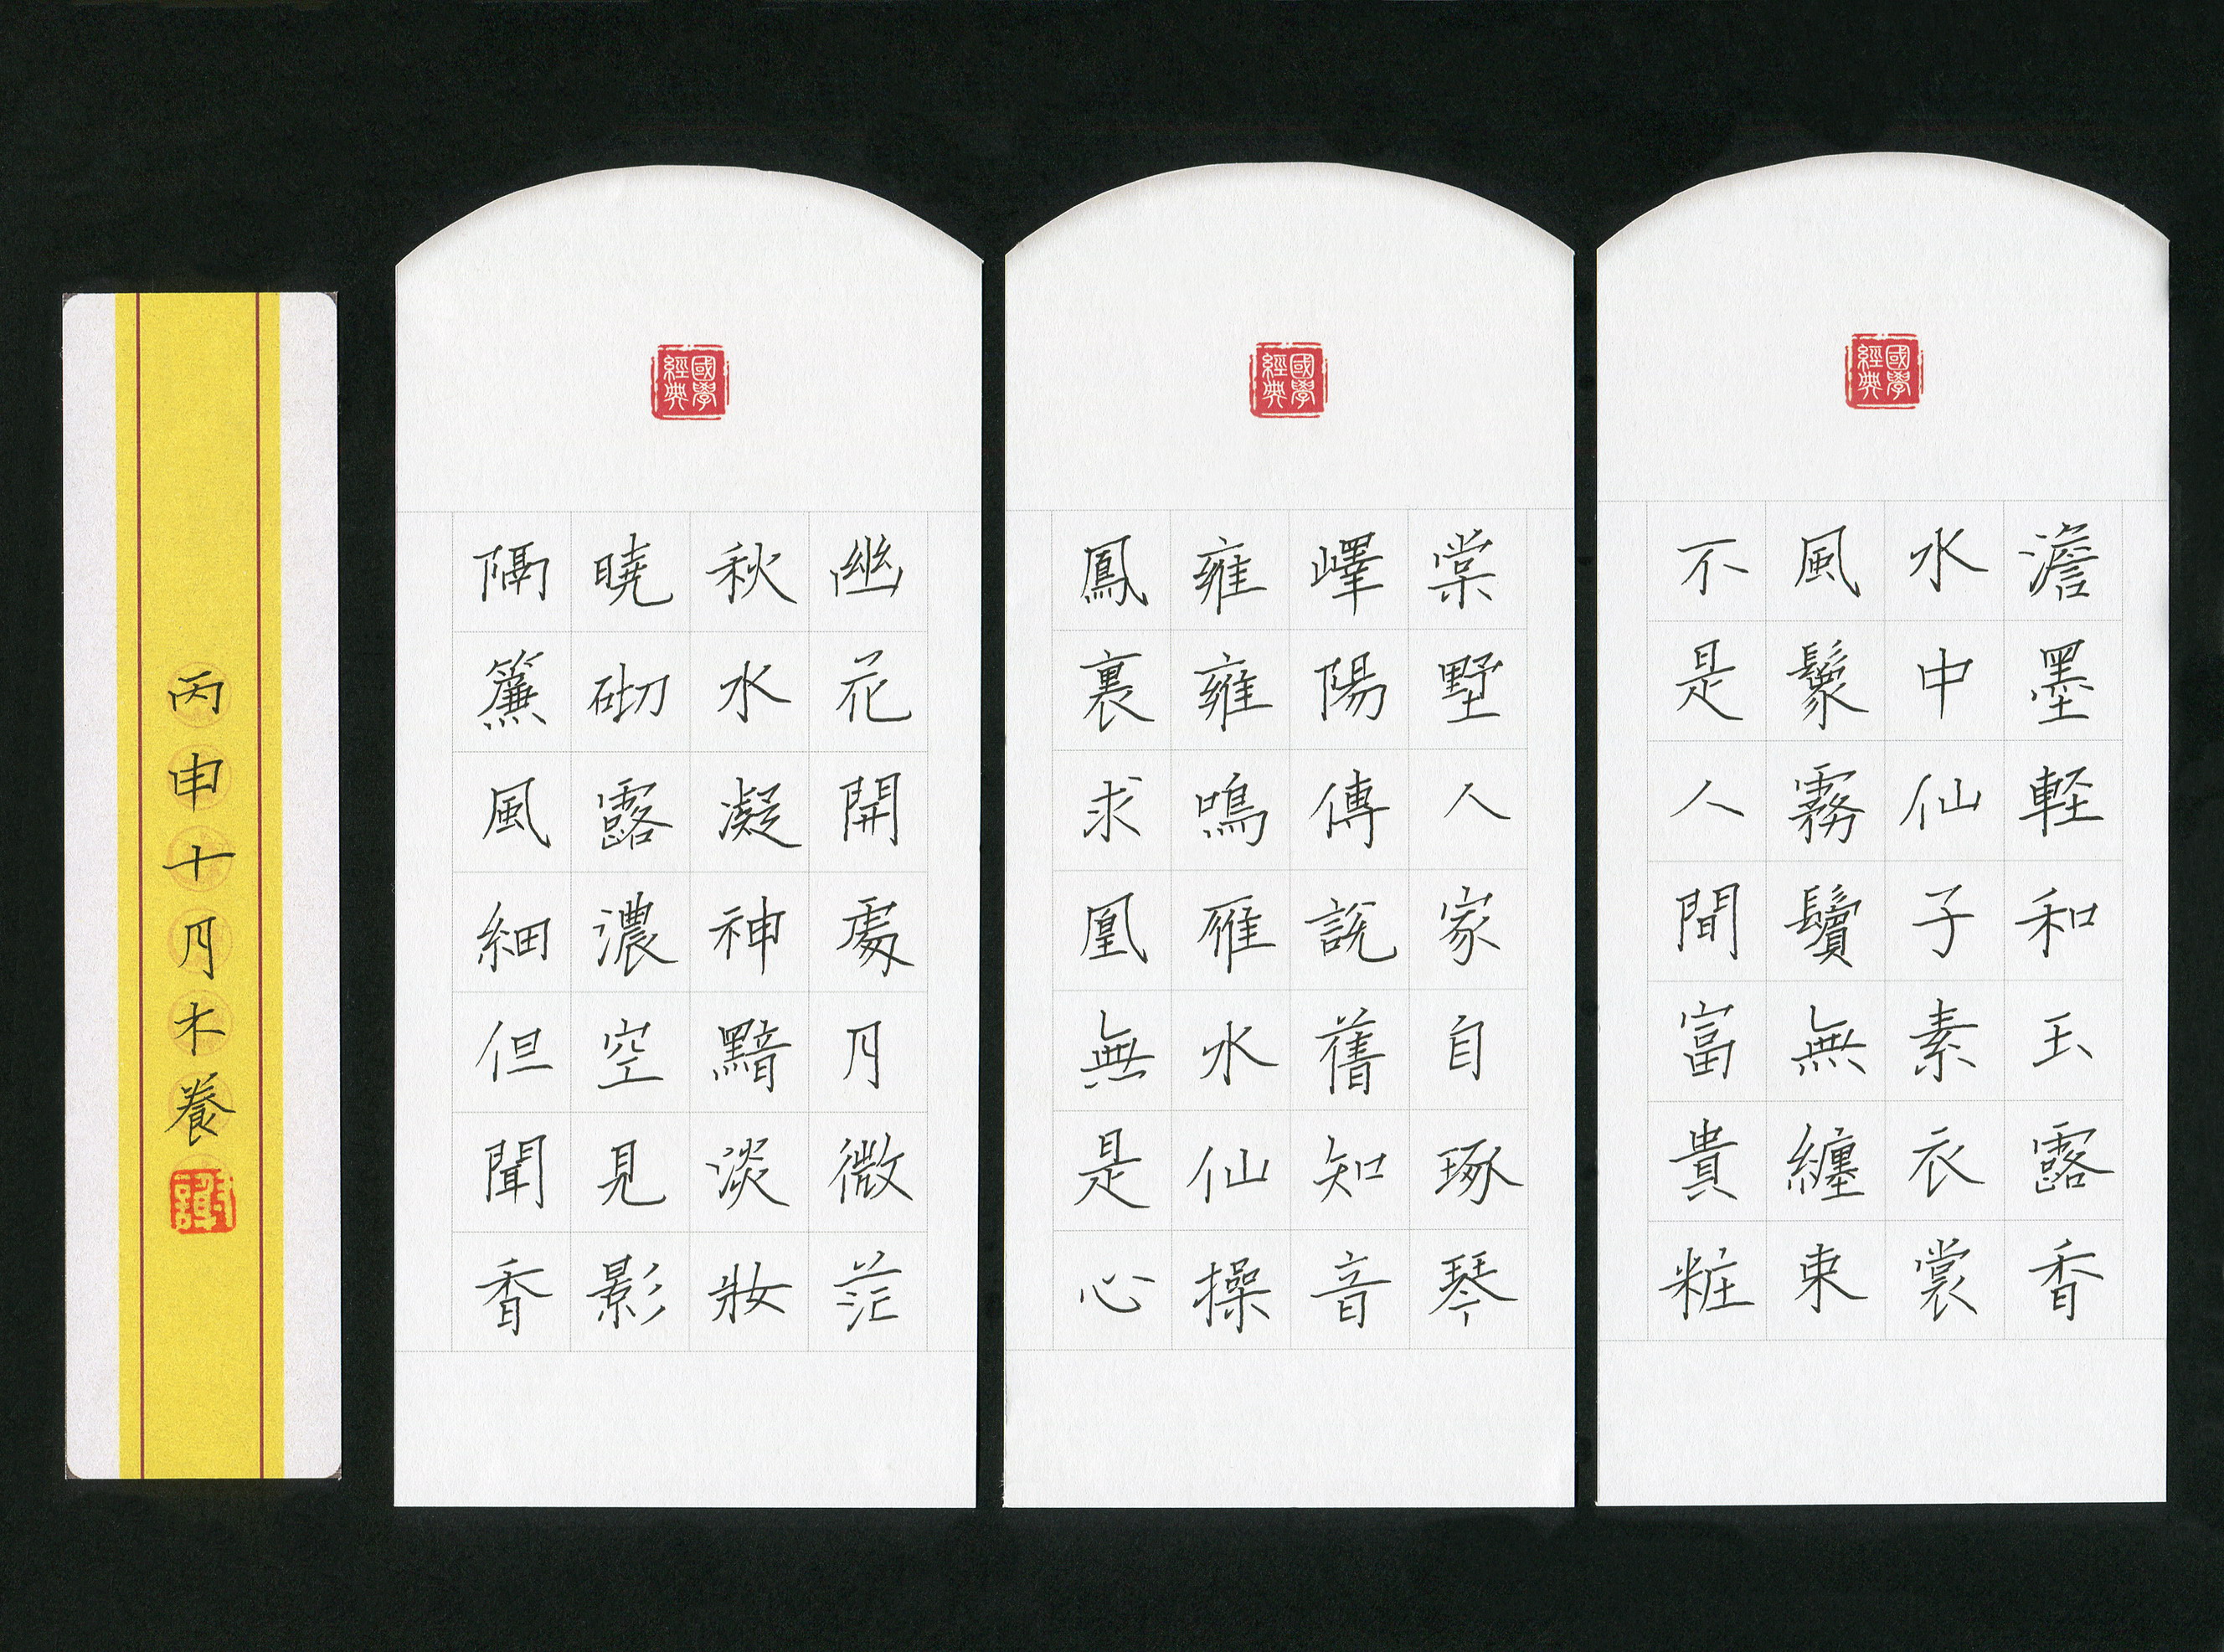 國學
經典
澹墨輕和玉露香
水中仙子素衣裳
風鬟霧鬢無纏束
不是人間富貴粧
國學
經典
棠墅人家自琢琴
嶧陽傳說舊知音
雍雍鳴雁水仙操
鳳裏求凰無是心
國學
經典
幽花開處月微茫
秋水凝神黯淡妝
曉砌露濃空見影
隔簾風細但聞香
丙申十月木養
謝